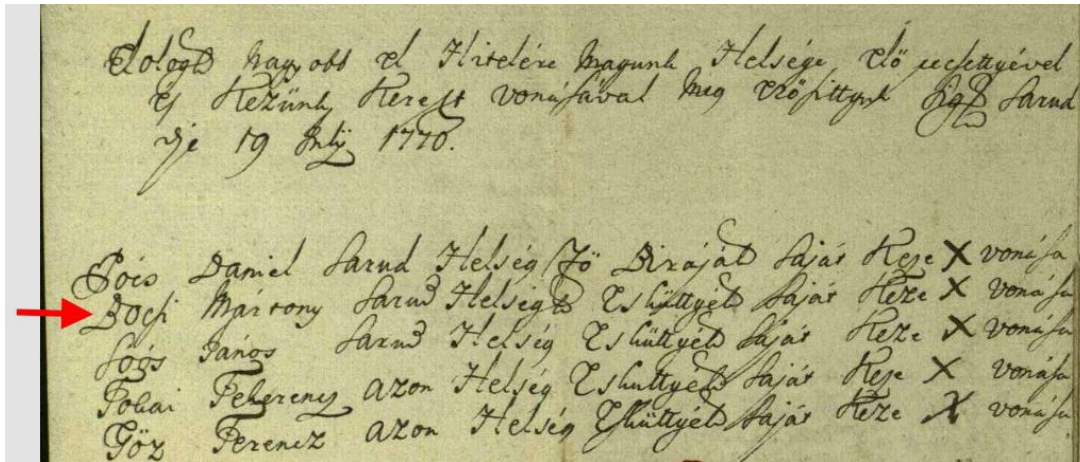 Nagyobb el Hitelére Magunk Helsége
Kezünk Kereszt vonásával Meg Sarud
die 19 July 1770.
Daniel Sarud Helség Fő Birájáb Saját Keze X vonása
Bocsi Mártony Sarud Helségb Eskuttyéb Saját Keze X vonása
János Sarud Helség Eskuttyéb Saját Keze X vonása
Tokai Feherencz azon Helség Eskuttyéb Saját Keze X vonása
Göz Ferencz azon Helség Eskuttyéb Saját Keze X vonása